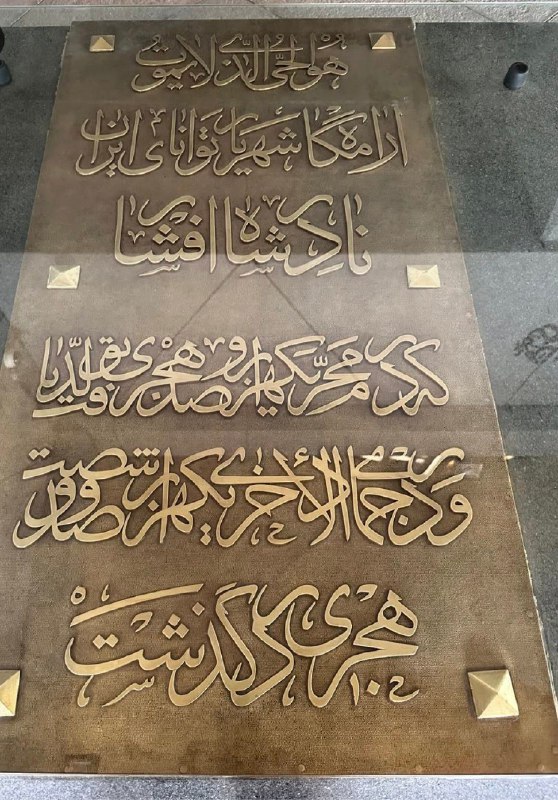 هو الحی الذی لا یموت
ارامگاه شهریار توانای ایران
نادر شاه افشار
که در محرم یکهزار و صد هجری تولد یافت
و در جمادی الأخری یکهزار و صد و شصت
هجری در گذشت